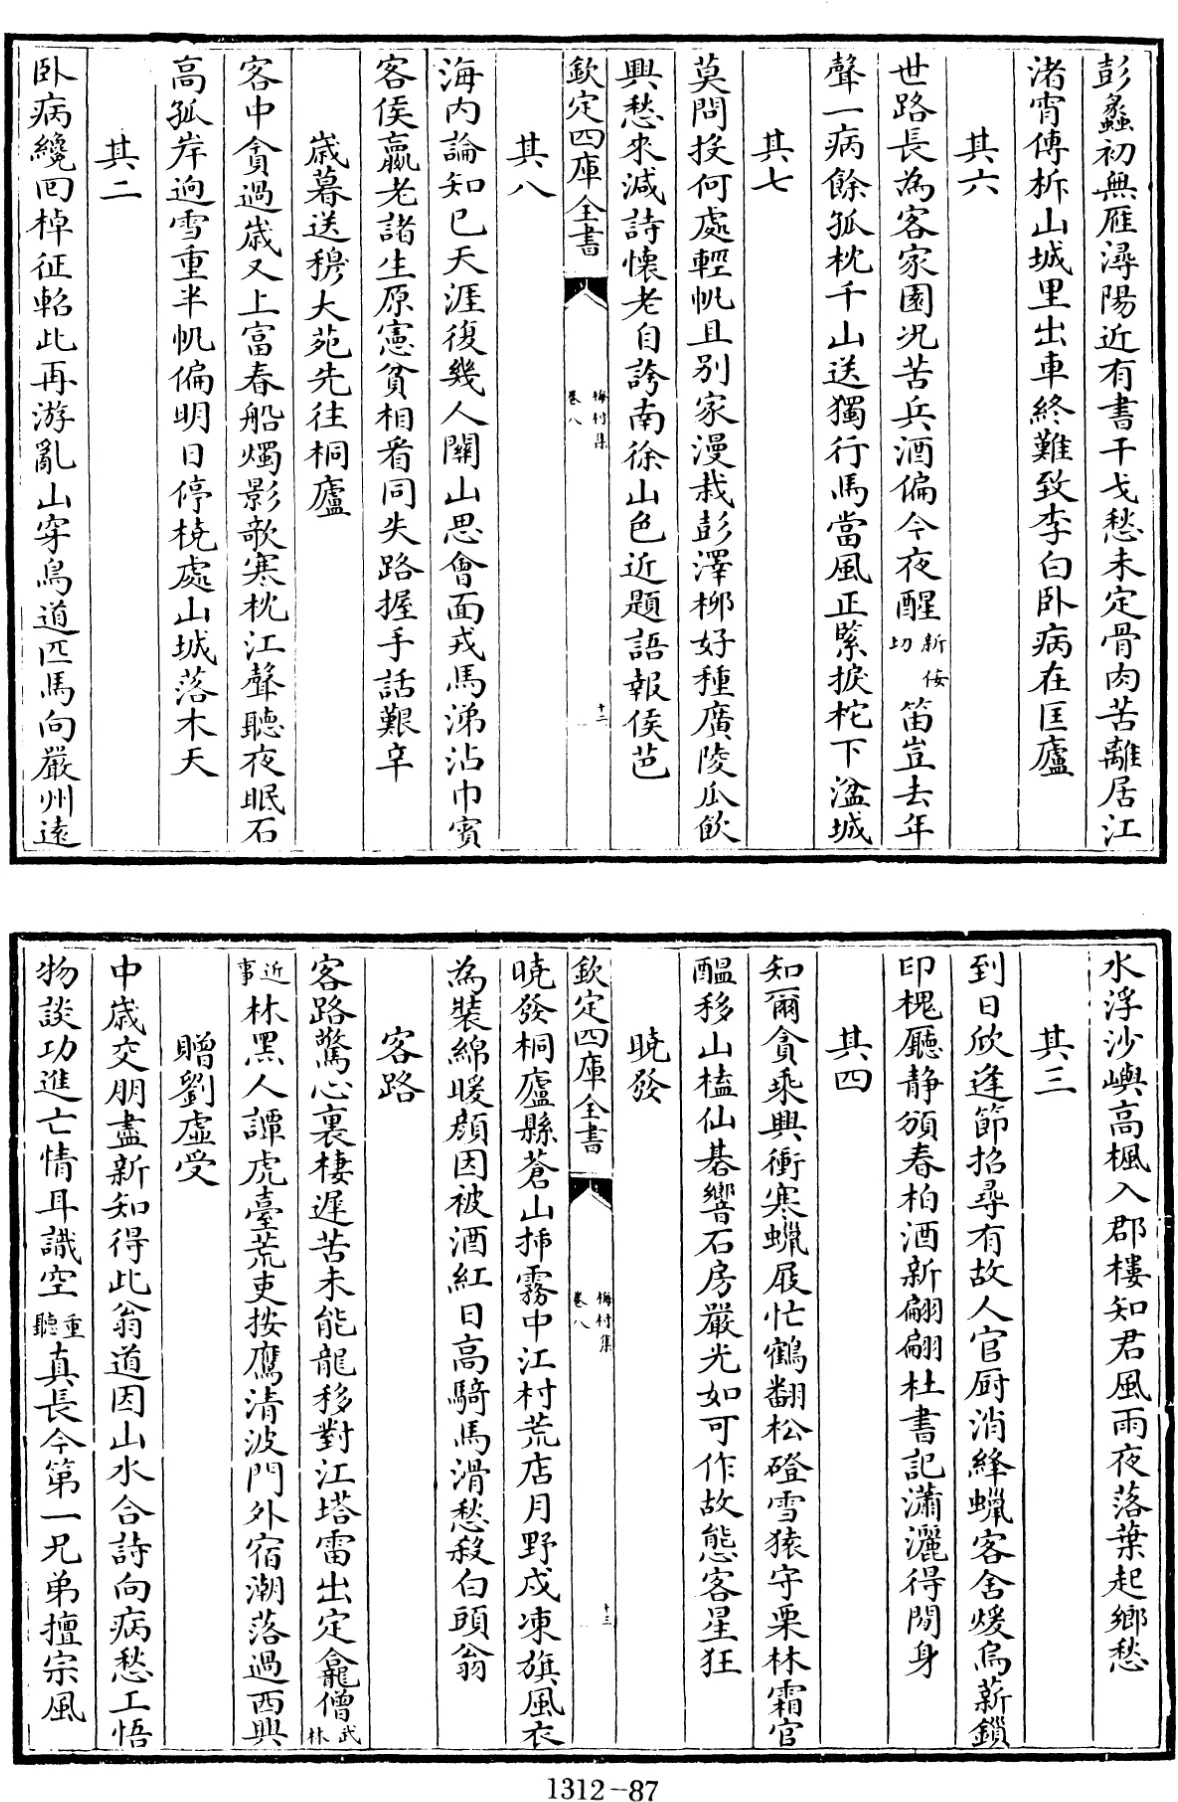 彭蠡初無雁潯陽近有書干戈愁未定骨肉苦離居江
渚宵傳柝山城里出車終難致李白卧病在匡廬
其六
世路長為客家園况苦兵酒偏今夜醒新佞切笛豈去年
聲一病餘孤枕千山送獨行馬當風正緊捩柁下湓城
其七
莫問投何處輕帆且别家漫栽彭澤栁好種廣陵瓜飲
興愁來減詩懷老自誇南徐山色近題語報侯芭
欽定四庫全書
梅村集
卷八
十二
其八
海内論知已天涯復幾人關山思會面戎馬涕沾巾賓
客侯嬴老諸生原憲貧相看同失路握手話艱辛
歲暮送穆大苑先往桐廬
客中貪過歲又上富春船燭影歌寒枕江聲聽夜眠石
高孤岸逈雪重半帆偏明日停橈處山城落木天
其二
卧病纔回棹征軺此再游亂山穿鳥道匹馬向嚴州遠
水浮沙嶼高楓入郡樓知君風雨夜落葉起鄉愁
其三
到日欣逢節招尋有故人官厨消絳蠟客舍煖烏薪鎖
印槐廳静頒春柏酒新翩翩杜書記瀟灑得閒身
其四
知爾貪乘興衝寒蠟屐忙鶴翻松磴雪猿守栗林霜官
醖移山榼仙碁響石房嚴光如可作故態客星狂
曉發
欽定四庫全書
梅村集
卷八
十三
曉發桐廬縣蒼山揷霧中江村荒店月野戍凍旗風衣
為裝綿暖顔因被酒紅日高騎馬滑愁殺白頭翁
客路
客路驚心裏棲遲苦未能龍移對江塔雷出定龕僧武林
近事林黑人譚虎臺荒吏按鷹清波門外宿潮落過西興
贈劉虚受
中歲交朋盡新知得此翁道因山水合詩向病愁工悟
物談功進亡情耳識空重聽真長今第一兄弟擅宗風
1312-87